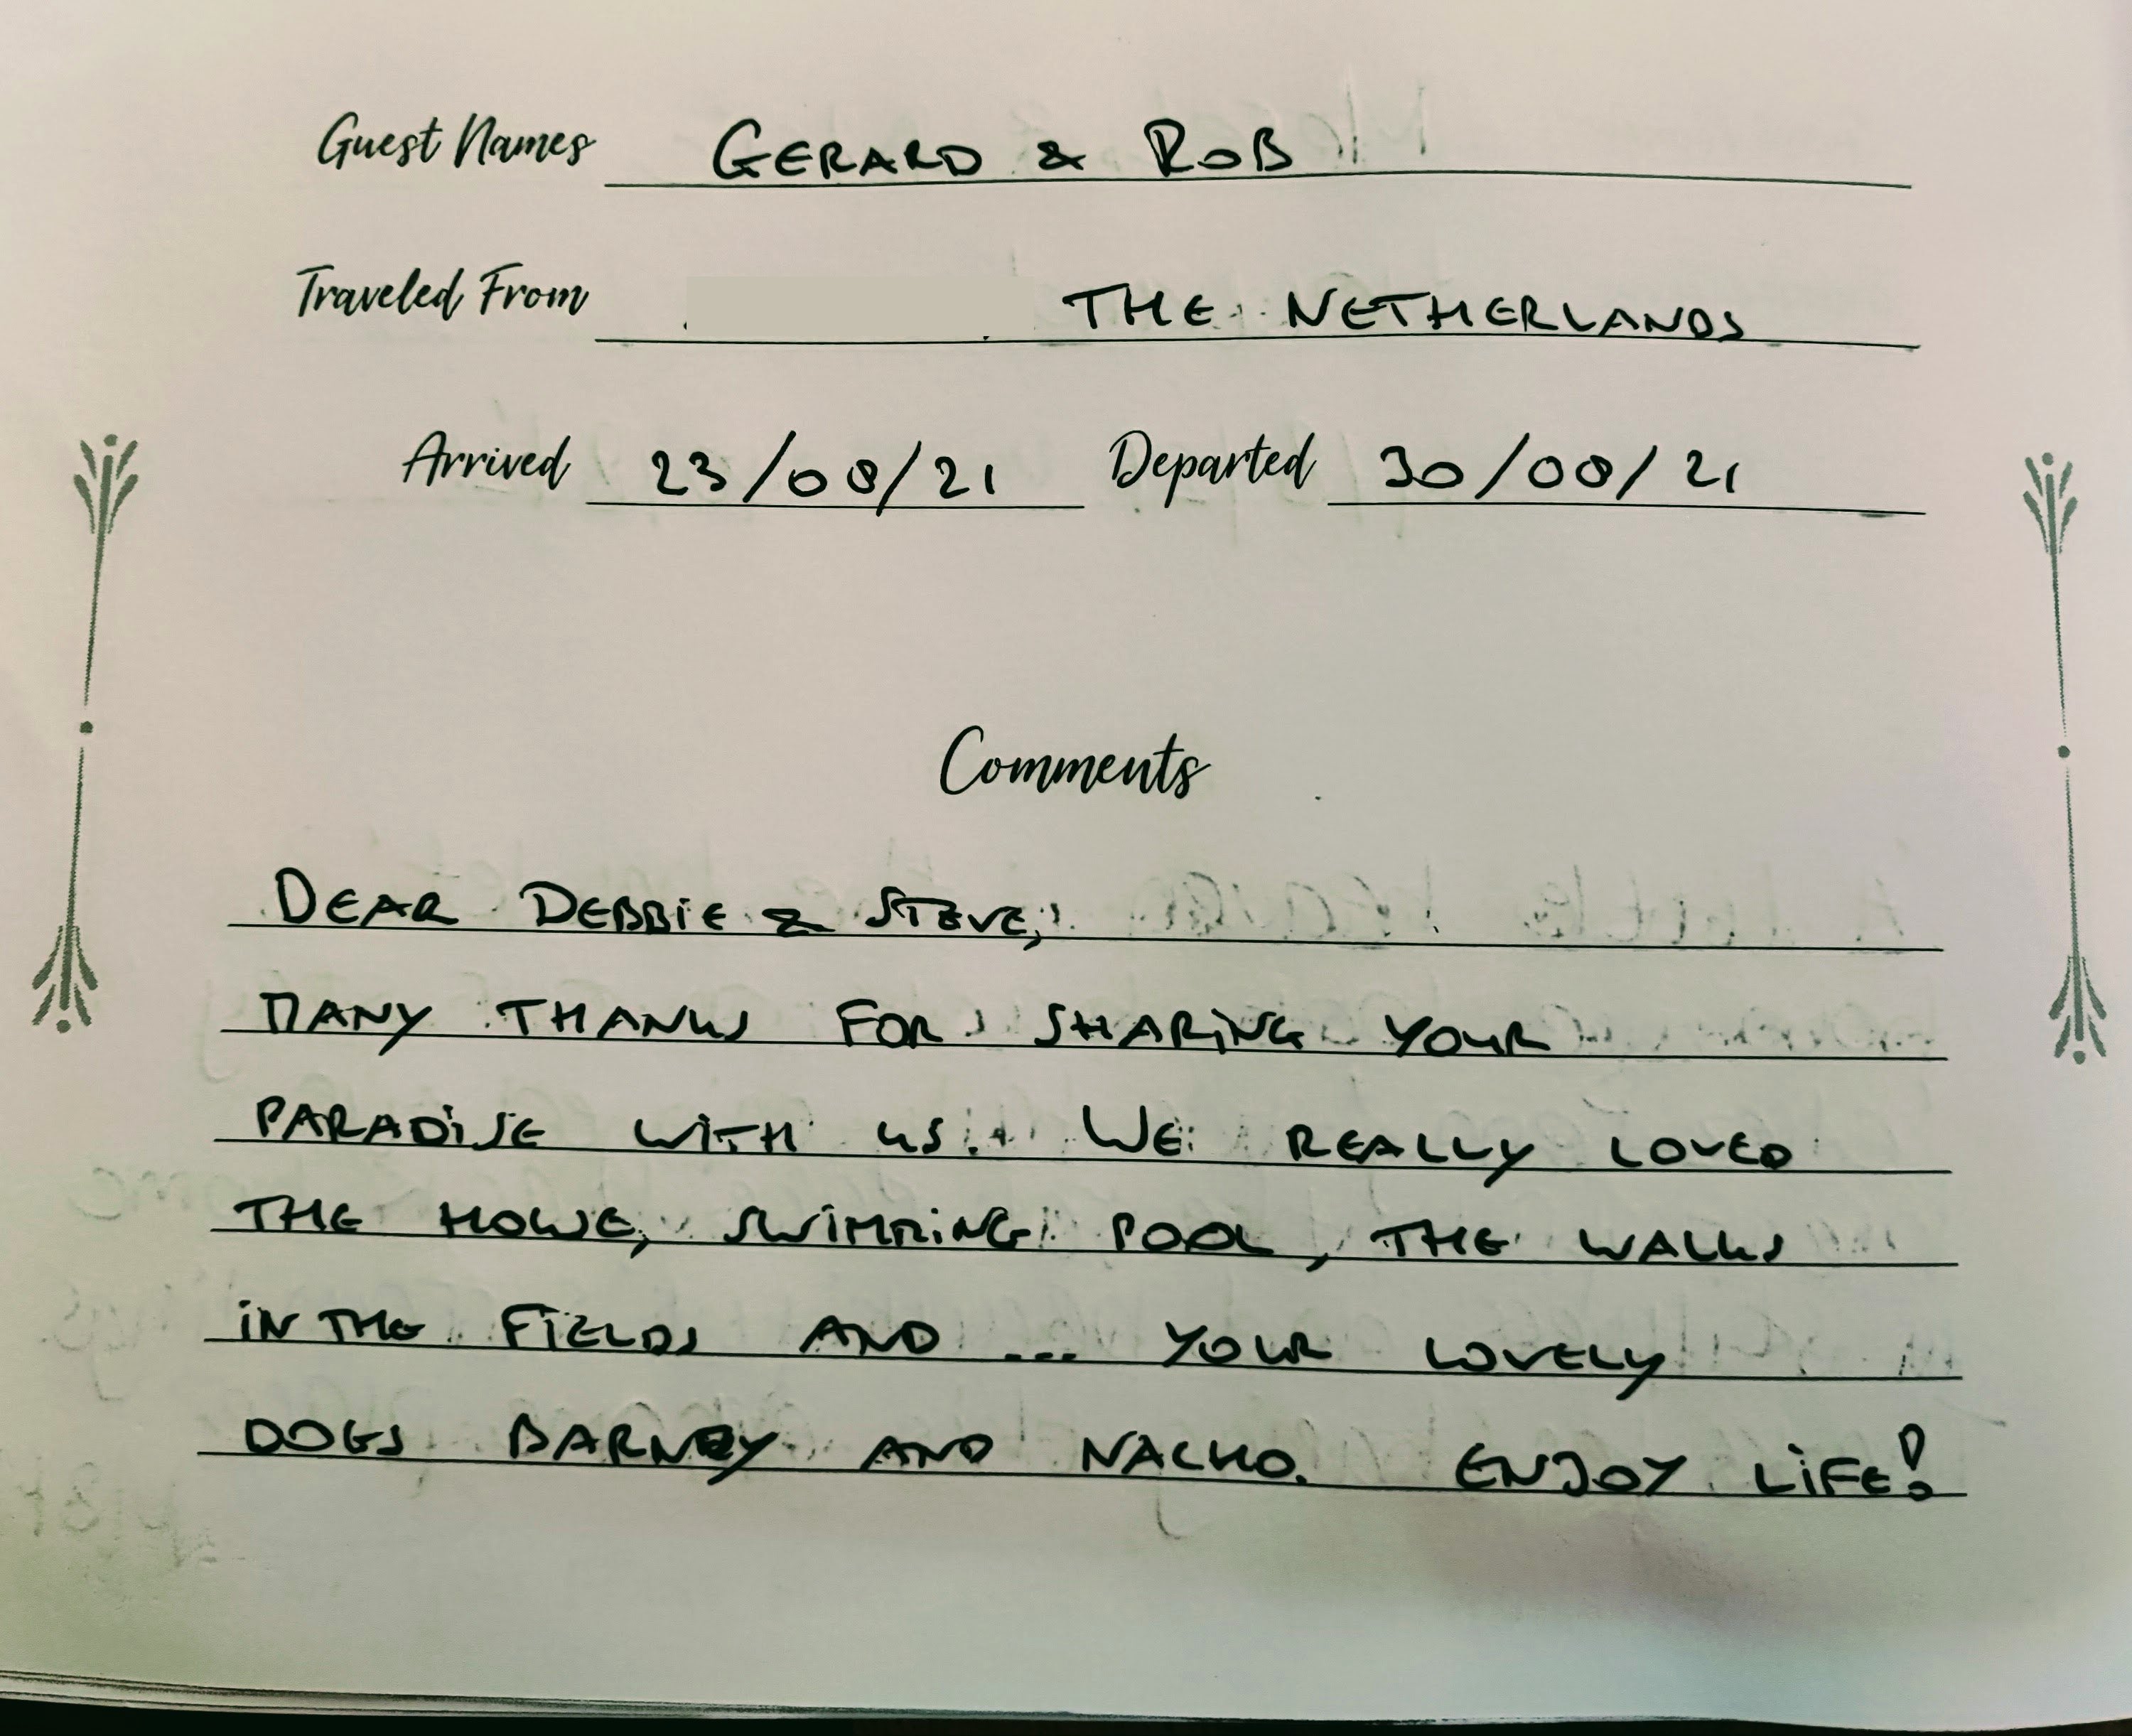 Guest Names GERARD & ROB
Traveled From THE NETHERLANDS
Arrived 23/08/21 Departed 30/08/21
Comments
DEAR DEBBIE & STEVE,
MANY THANKS FOR SHARING YOUR
PARADISE WITH US. WE REALLY LOVED
THE HOUSE, SWIMMING POOL, THE WALKS
IN THE FIELDS AND ... YOUR LOVELY
DOGS BARNEY AND NACHO. ENJOY LIFE!